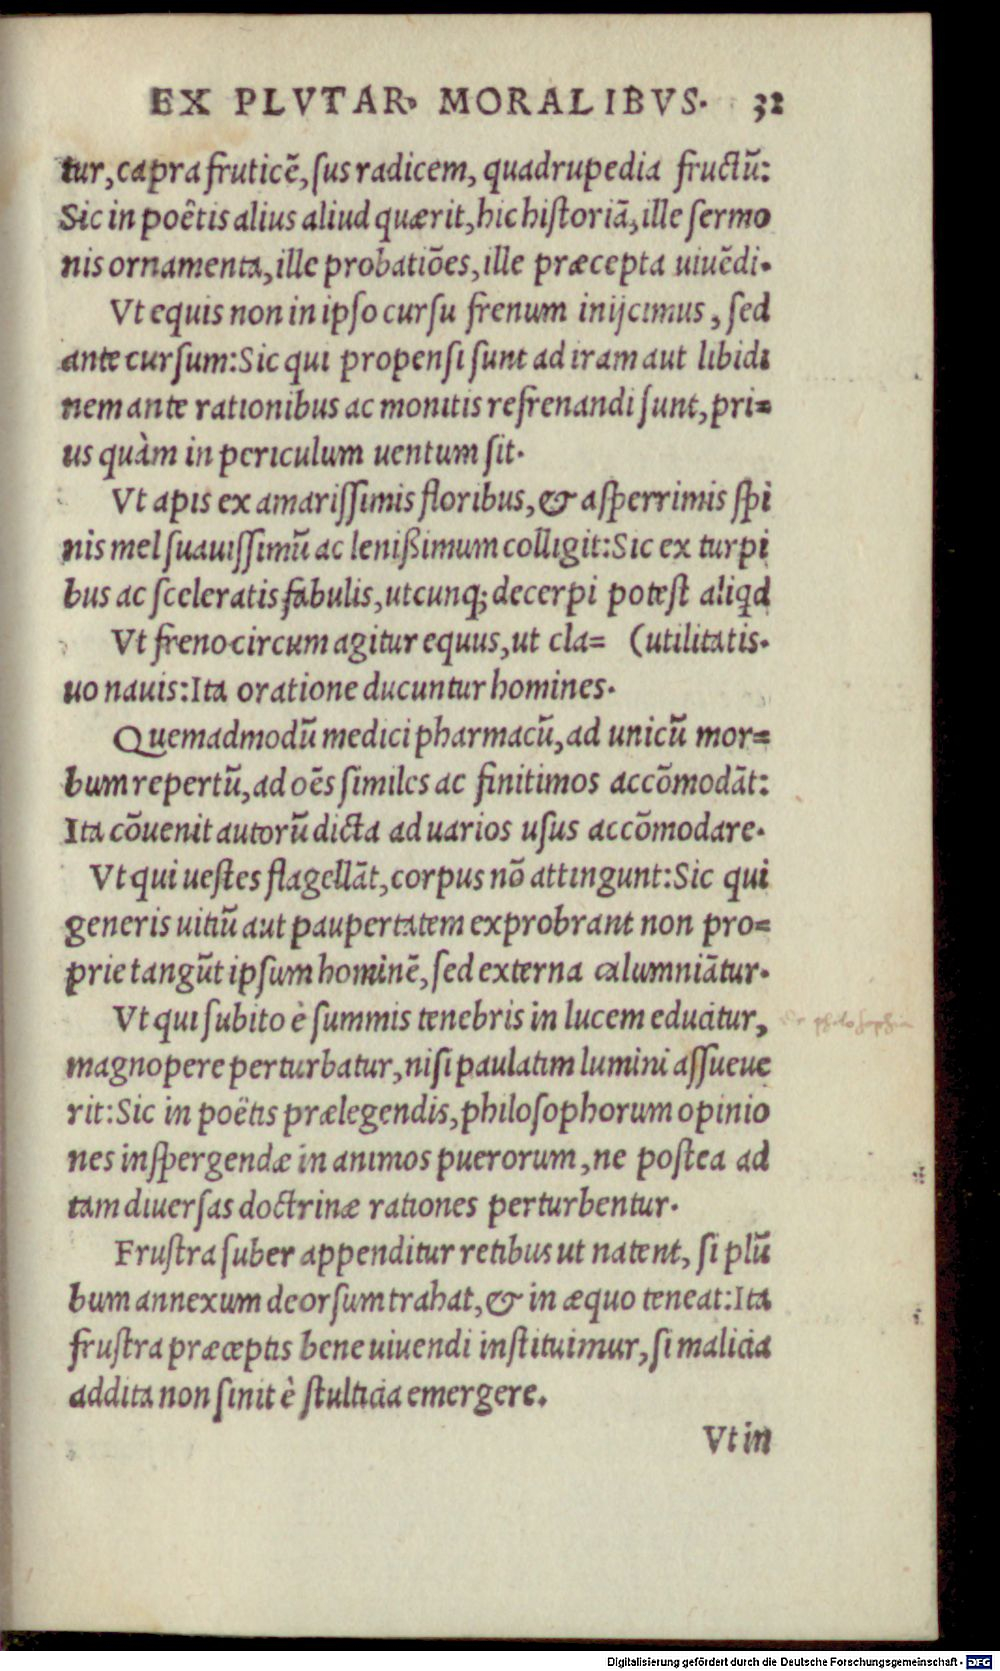 EX PLVTAR. MORALIBVS. 32
tur, capra fruticē, ſus radicem, quadrupedia fructū:
Sic in poêtis alius aliud quærit, hic hiſtoriā, ille ſermo
nis ornamenta, ille probatiōes, ille præcepta uiuēdi.
Vt equis non in ipſo curſu frenum inijcimus, ſed
ante curſum: Sic qui propenſi ſunt ad iram aut libidi
nem ante rationibus ac monitis refrenandi ſunt, pri=
us quàm in periculum uentum ſit.
Vt apis ex amariſſimis floribus, & aſperrimis ſpi
nis mel ſuauiſſimū ac lenißimum colligit: Sic ex turpi
bus ac ſceleratis fabulis, utcunq; decerpi poteſt aliqd
Vt freno circumagitur equus, ut cla= (utilitatis.
uo nauis: Ita oratione ducuntur homines.
Quemadmodū medici pharmacū, ad unicū mor=
bum repertū, ad oēs ſimiles ac finitimos accōmodāt:
Ita cōuenit autorū dicta ad uarios uſus accōmodare.
Vt qui ueſtes flagellāt, corpus nō attingunt: Sic qui
generis uitiū aut paupertatem exprobrant non pro=
prie tangūt ipſum hominē, ſed externa calumniātur.
Vt qui ſubito è ſummis tenebris in lucem educitur,
magnopere perturbatur, niſi paulatim lumini aſſueue
rit: Sic in poëtis prælegendis, philoſophorum opinio
nes inſpergendæ in animos puerorum, ne poſtea ad
tam diuerſas doctrinæ rationes perturbentur.
Fruſtra ſuber appenditur retibus ut natent, ſi plū
bum annexum deorſum trahat, & in æquo teneat: Ita
fruſtra præceptis bene uiuendi inſtituimur, ſi malicia
addita non ſinit è ſtulticia emergere.
Vt in
Digitalisierung gefördert durch die Deutsche Forschungsgemeinschaft - DFG